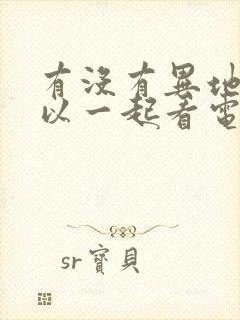 有沒有異地
以一起看電
sr寶貝